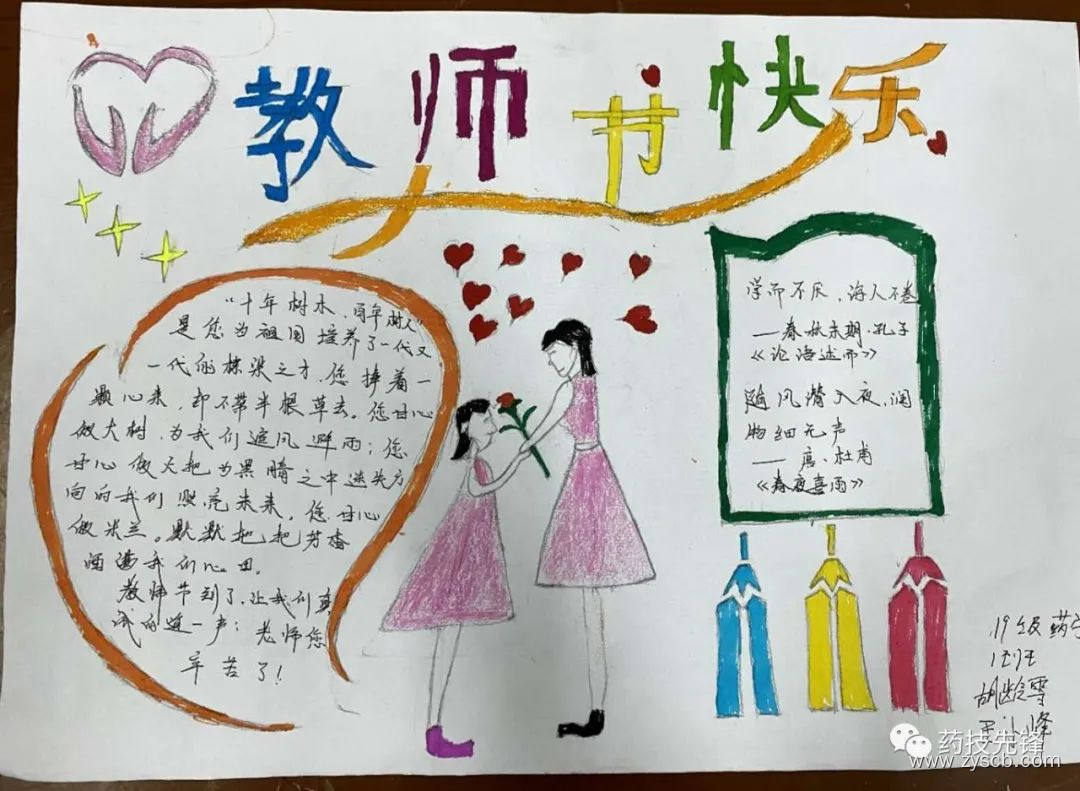 教师节快乐
"十年树木,百年树人"
是您为祖国培养了一代又
一代的栋梁之才,您捧着一
颗心来,却不带半根草去。您甘心
做大树,为我们遮风避雨;您
甘心做火把为黑暗之中迷失方
向的我们照亮未来,您甘心
做米兰。默默把把芳香
洒满我们心田。
教师节到了,让我们真
诚的道一声:老师您
辛苦了!
学而不厌,诲人不倦
——春秋末期·孔子
《论语述而》
随风潜入夜,润
物细无声
——唐·杜甫
《春夜喜雨》
19级药学
1班
胡龄雪
药技先锋
www.zyscb.com